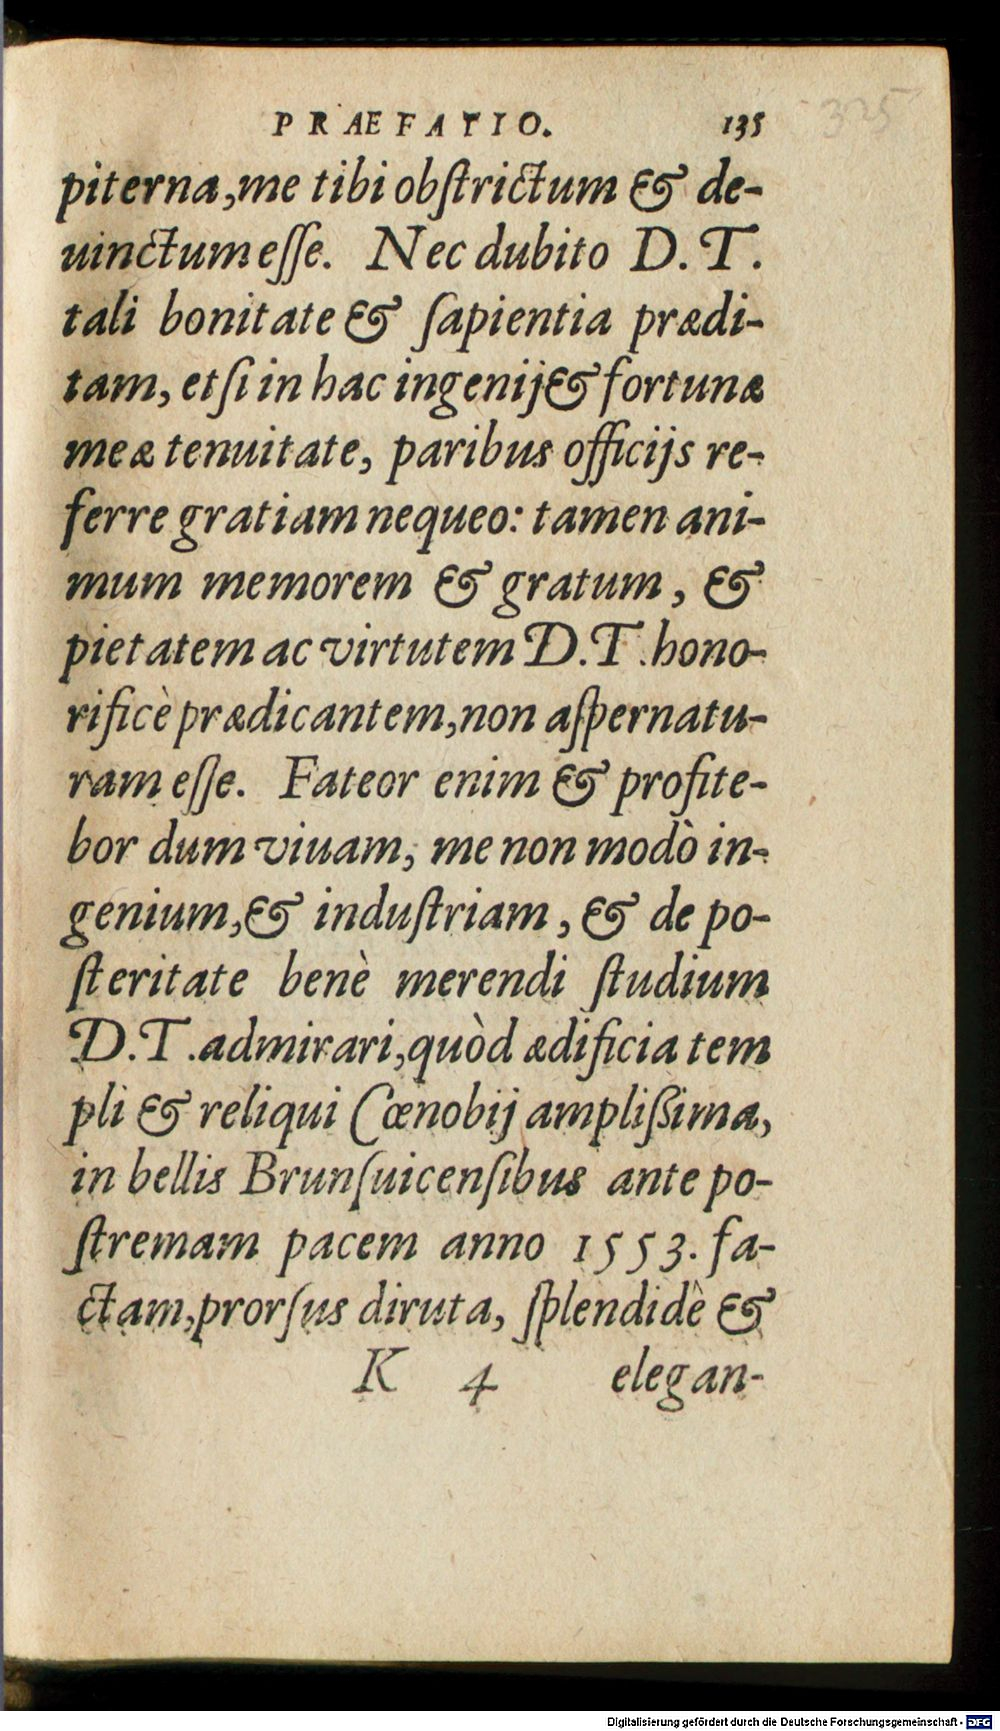 PRAEFATIO. 135
325
piterna, me tibi obstrictum & de-
uinctum esse. Nec dubito D. T.
tali bonitate & sapientia prædi-
tam, etsi in hac ingenij & fortunæ
meæ tenuitate, paribus officijs re-
ferre gratiam nequeo: tamen ani-
mum memorem & gratum, &
pietatem ac virtutem D.T. hono-
rificè prædicantem, non aspernatu-
ram esse. Fateor enim & profite-
bor dum viuam, me non modò in-
genium, & industriam, & de po-
steritate benè merendi studium
D.T. admirari, quòd ædificia tem
pli & reliqui Cœnobij amplißima,
in bellis Brunsuicensibus ante po-
stremam pacem anno 1553. fa-
ctam, prorsus diruta, splendidè &
K 4 elegan-
Digitalisierung gefördert durch die Deutsche Forschungsgemeinschaft - DFG